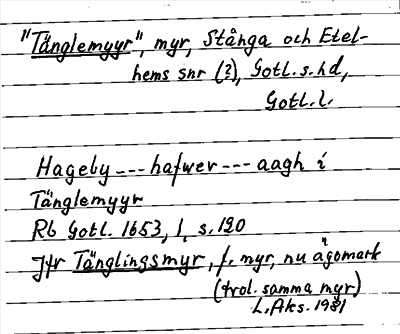 "Tänglemyyr", myr, Stånga och Etel-
hems snr (?), Gotl. s. hd,
Gotl. l.
Hageby --- hafwer --- aagh i
Tänglemyyr
Rb Gotl. 1653, 1, s. 120
Jfr Tänglingsmyr, f. myr, nu ägomark
(trol. samma myr)
L. Aks. 1981